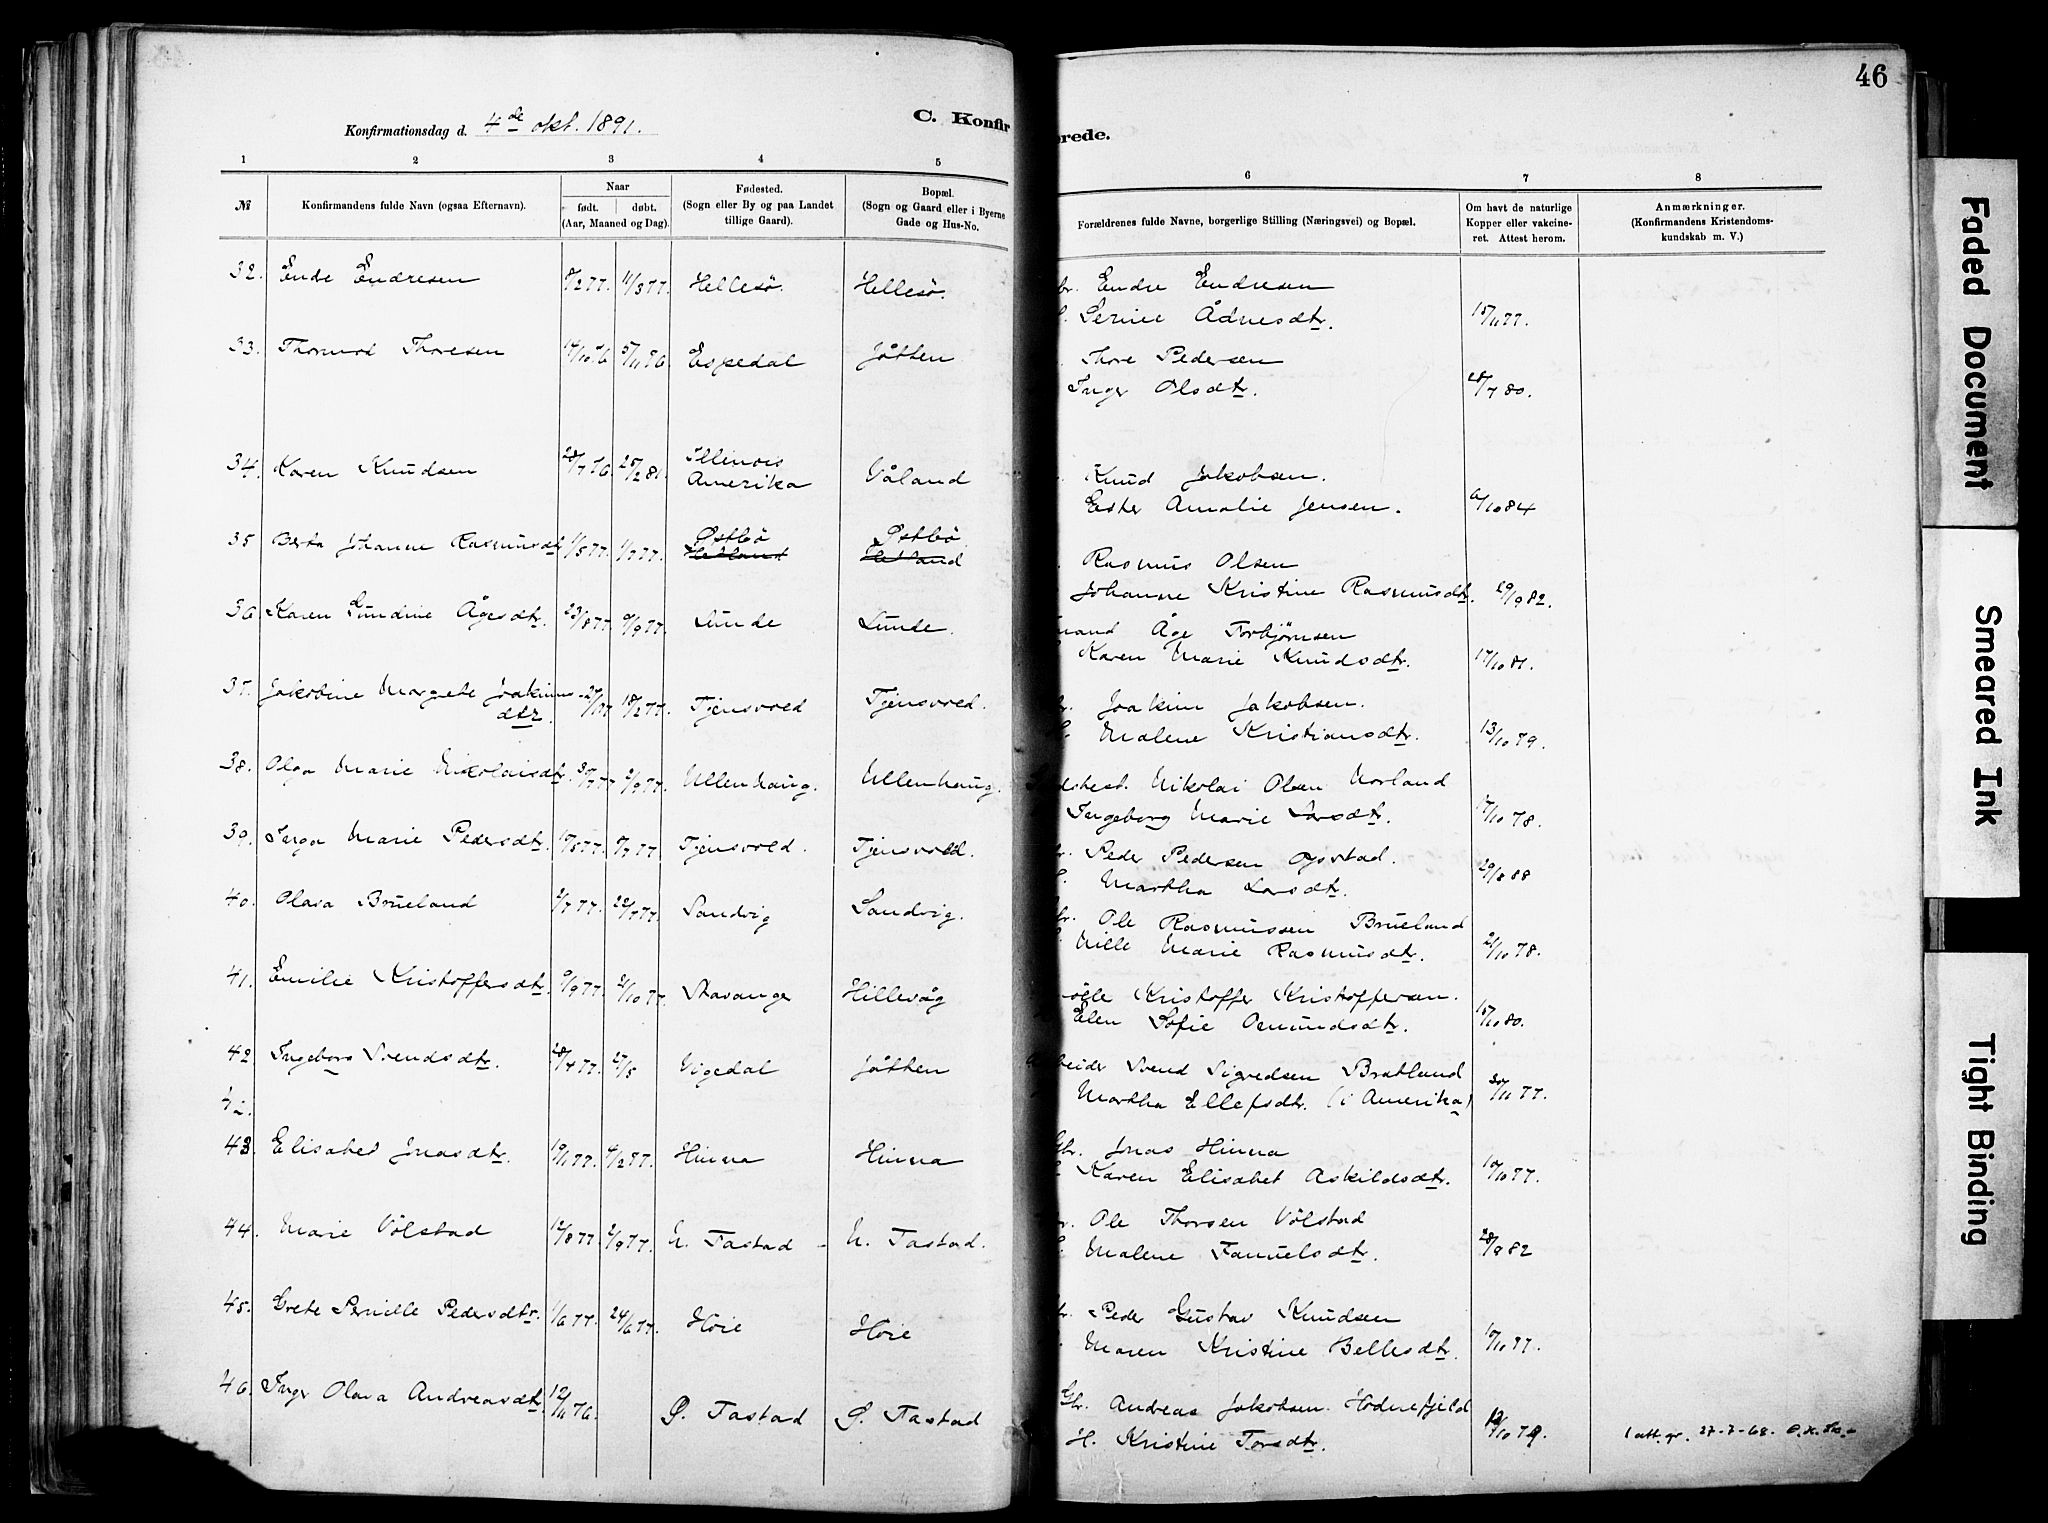 46
Konfirmationsdag d. 4de okt. 1891.
C. Konfir
rede.
1 2 3 4 5 6 7 8
№
Konfirmandens fulde Navn (ogsaa Efternavn).
Naar
født. døbt.
(Aar, Maaned og Dag).
Fødested.
(Sogn eller By og paa Landet
tillige Gaard).
Bopæl.
(Sogn og Gaard eller i Byerne
Gade og Hus-No.
Forældrenes fulde Navne, borgerlige Stilling (Næringsvei) og Bopæl.
Om havt de naturlige
Kopper eller vakcine-
ret. Attest herom.
Anmærkninger.
(Konfirmandens Kristendoms-
kundskab m. V.)
32. Ende Endresen 8/2 77. 11/3 77. Hellesö. Hellesö. Endre Endresen
Serine Ådnesdtr. 15/11 77.
33. Thormod Thoresen 14/10 76 5/11 76 Espedal Jåtten Thore Pedersen
Inger Olsdtr. 28/7 80.
34. Karen Knudsen 28/7 76 25/2 81. Illinois
Amerika Våland Knud Jakobsen.
Ester Amalie Jensen. 6/10 84
35 Berta Johanne Rasmusdtr 1/5 77. 1/7 77. Østbö Østbö
Hetland Hetland Rasmus Olsen
Johanne Kristine Rasmusdtr. 29/9 82.
36. Karen Gundine Ågesdtr. 23/8 77. 9/9 77. Lunde Lunde. mand Åge Torbjörnsen
Karen Marie Knudsdtr. 17/10 81.
37. Jakobine Margrete Joakims-
dtr. 27/1 77 18/2 77. Tjensvold Tjensvold. Joakim Jakobsen.
Malene Kristiansdtr. 13/10 79.
38. Olga Marie Nikolaisdtr. 30/7 77 2/9 77. Ullenhaug. Ullenhaug. Nikolai Olsen Norland
Ingeborg Marie Larsdtr. 17/10 78.
39. Inga Marie Pedersdtr. 15/5 77. 8/7 77 Tjensvold. Tjensvold. Peder Pedersen Ogstad.
Martha Larsdtr. 29/8 88
40. Olava Brueland 2/7 77. 22/7 77. Sandvig Sandvig. Ole Rasmussen Brueland
Nille Marie Rasmusdtr. 21/10 78.
41. Emilie Kristoffersdtr. 9/9 77. 21/10 77. Stavanger Hillevåg Kristoffer Kristoffersen.
Elen Sofie Omundsdtr. 15/10 80.
42 Ingeborg Svendsdtr. 28/4 77. 27/5 Vigedal Jåtten Arbeider Svend Sigvedsen Bratland
42. Martha Ellefsdtr. (i Amerika) 30/11 77.
43 Elisabet Jonasdtr. 19/1 77. 4/2 77. Hinna Hinna Gbr. Jonas Hinna
Karen Elisabet Askildsdtr. 10/10 77.
44. Marie Völstad 12/8 77. 2/9 77. N. Tastad N. Tastad. Ole Thorsen Völstad
Malene Samuelsdtr. 28/9 82
45. Grete Pernille Pedersdtr. 1/6 77. 24/6 77. Höie Höie Peder Gustav Knudsen
Maren Kristine Bellesdtr. 15/10 77.
46. Inger Olava Andreasdtr. 12/11 76. Ø. Tastad Ø. Tastad Gbr. Andreas Jakobsen Hodnefjeld
H. Kristine Torsdtr. 12/10 79. 1 att. gr. 27-7-68.
Faded Document
Smeared Ink
Tight Binding